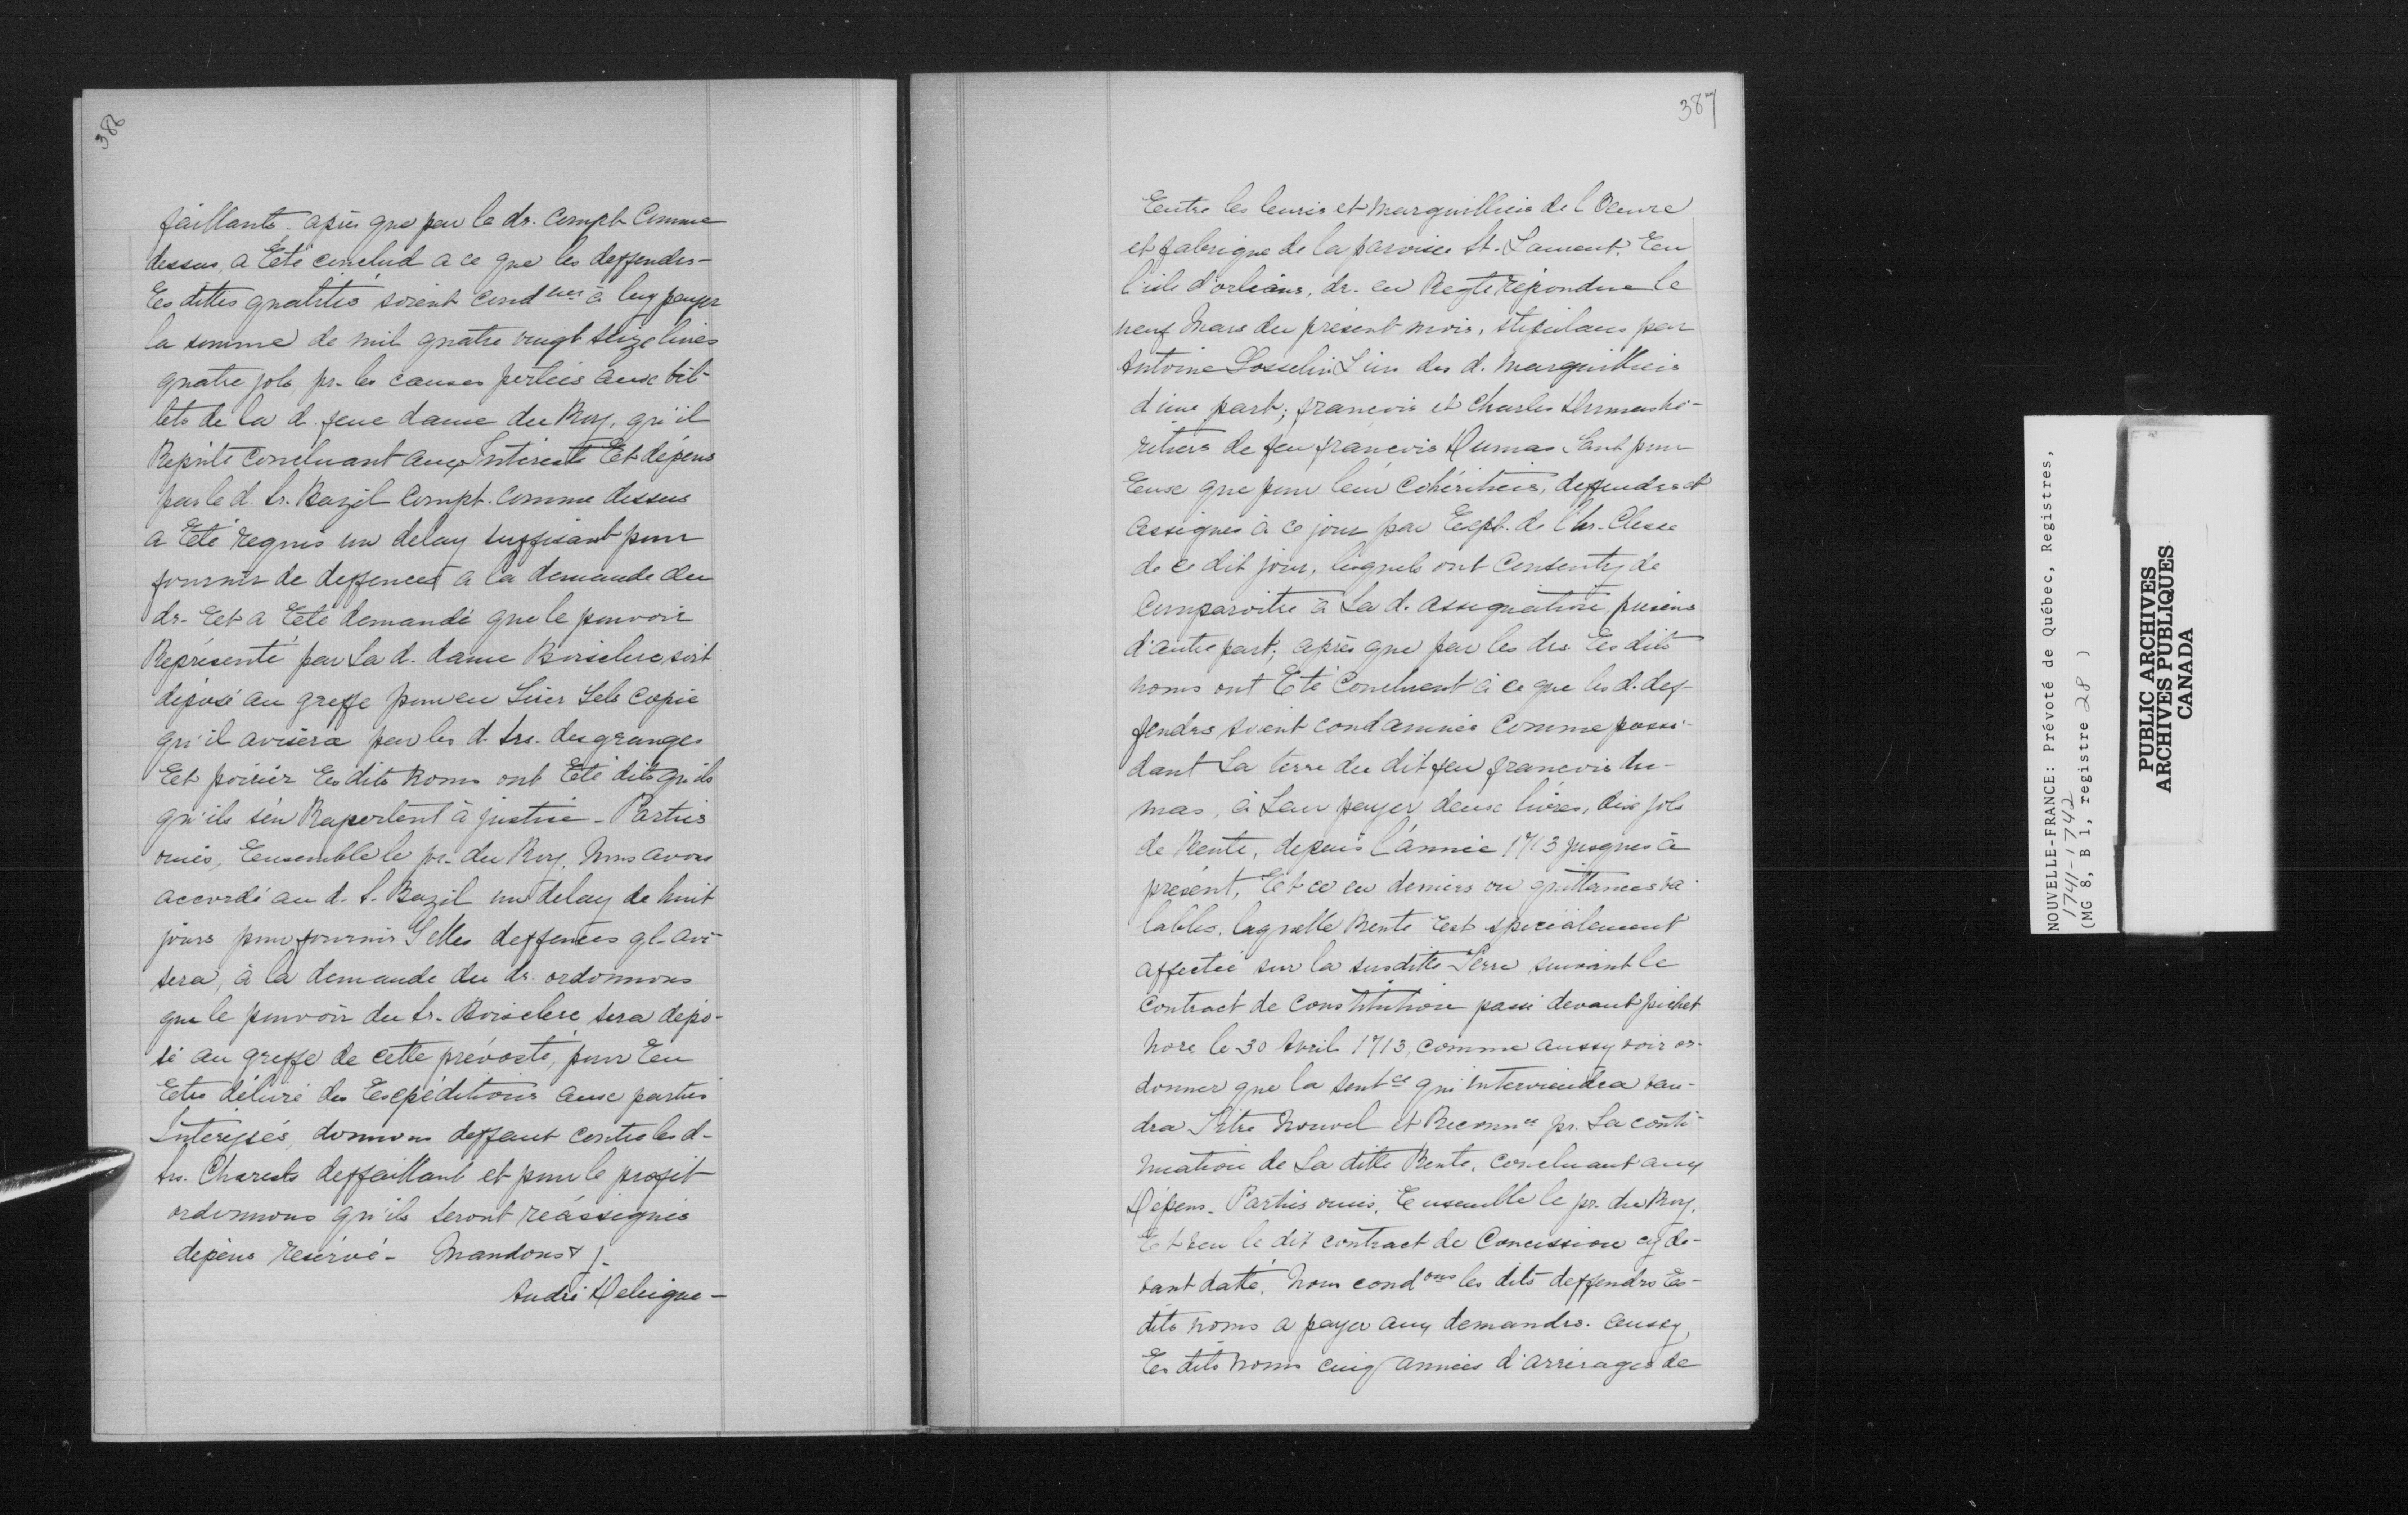 386
faillants. après que par le dr. compt. Comme
dessus, a Eté conclud a ce que les deffendrs-
Es dittes qualités soient cond nes à luy payer
la somme de mil quatre vingt seize livres
quatre sols, pr. les causes portées aux bil-
lets de la d. feue dame du Roy, qu'il
Repnte concluant aux Interests Et dépens
par le d. Sr. Bazil compt. comme dessus
a Eté requis un delay suffisant pour
fournir de deffences a la demande du
dr. Et a Eté demandé que le pouvoir
Représenté par La d. dame Boisclerc soit
déposé au greffe pour en tirer tels copie
qu'il avisera par les d. Srs. desgranges
Et poirier Es dits noms ont Eté dits qu'ils
qu'ils s'en Raportent à justice - Parties
ouies, Ensemble le pr. du Roy, Nous avons
accordé au d. S. Bazil un delay de huit
jours pour fournir telles deffences ql. avi-
sera, à la demande du dr. ordonnons
que le pouvoir du Sr. Boisclerc sera dépo-
sé au greffe de cette prévosté, pour En
Etre délivré des Expéditions aux parties
Interessés, donnons deffaut contre les d-
Srs. Charests deffaillant et pour le profit
ordonnons qu'ils seront réassignés
dépens réservé - Mandons &
André Deleigne -
387
Entre les Curés et Marguilliers de l'Oeuvre
et fabrique de la paroisse St. Laurent. En
l'isle d'orléans, dr. en Reqte répondue le
neuf Mars du présent mois, stipulans par
Antoine Gosselin L'un des d. Marguilliers
d'une part; francois et Charles Dumas hé-
ritiers de feu francois Dumas tant pour
Eux que pour leur Cohéritiers, deffendrs et
assignés à ce jour par Expt. de l'hr. Clesse
de ce dit jour, lesquels ont Consenty de
Comparoitre à La d. assignation, présens
d'autre part; après que par les drs Es dits
noms ont Eté Concluent à ce que les d. def-
fendrs soient condamnés comme possé-
dant La terre du dit feu francois Du-
mas, à Leur payer deux livres, dix sols
de Rente, depuis l'année 1713 jusques à
présent, Et ce en deniers ou quittances va-
lables, laquelle Rente Est spécialement
affectée sur la susditte Terre suivant le
contract de Constitution passé devant pichet
Nore le 30 Avril 1713, comme aussy voir or-
donner que la sentce qui interviendra vau-
dra Titre Nouvel et Reconnce pr. La conti-
nuation de La ditte Rente, concluant aux
Dépens. Parties ouies, Ensemble le pr. du Roy,
Et veu le dit contract de Concession cy de-
vant datté, Nous cond ons les dits deffendrs Es-
dits noms a payer aux demandrs. aussy
Es dits noms cinq années d'arrérages de
NOUVELLE-FRANCE: Prévoté de Québec, Registres,
1741-1742
(MG 8, B 1, registre 28 )
PUBLIC ARCHIVES
ARCHIVES PUBLIQUES
CANADA